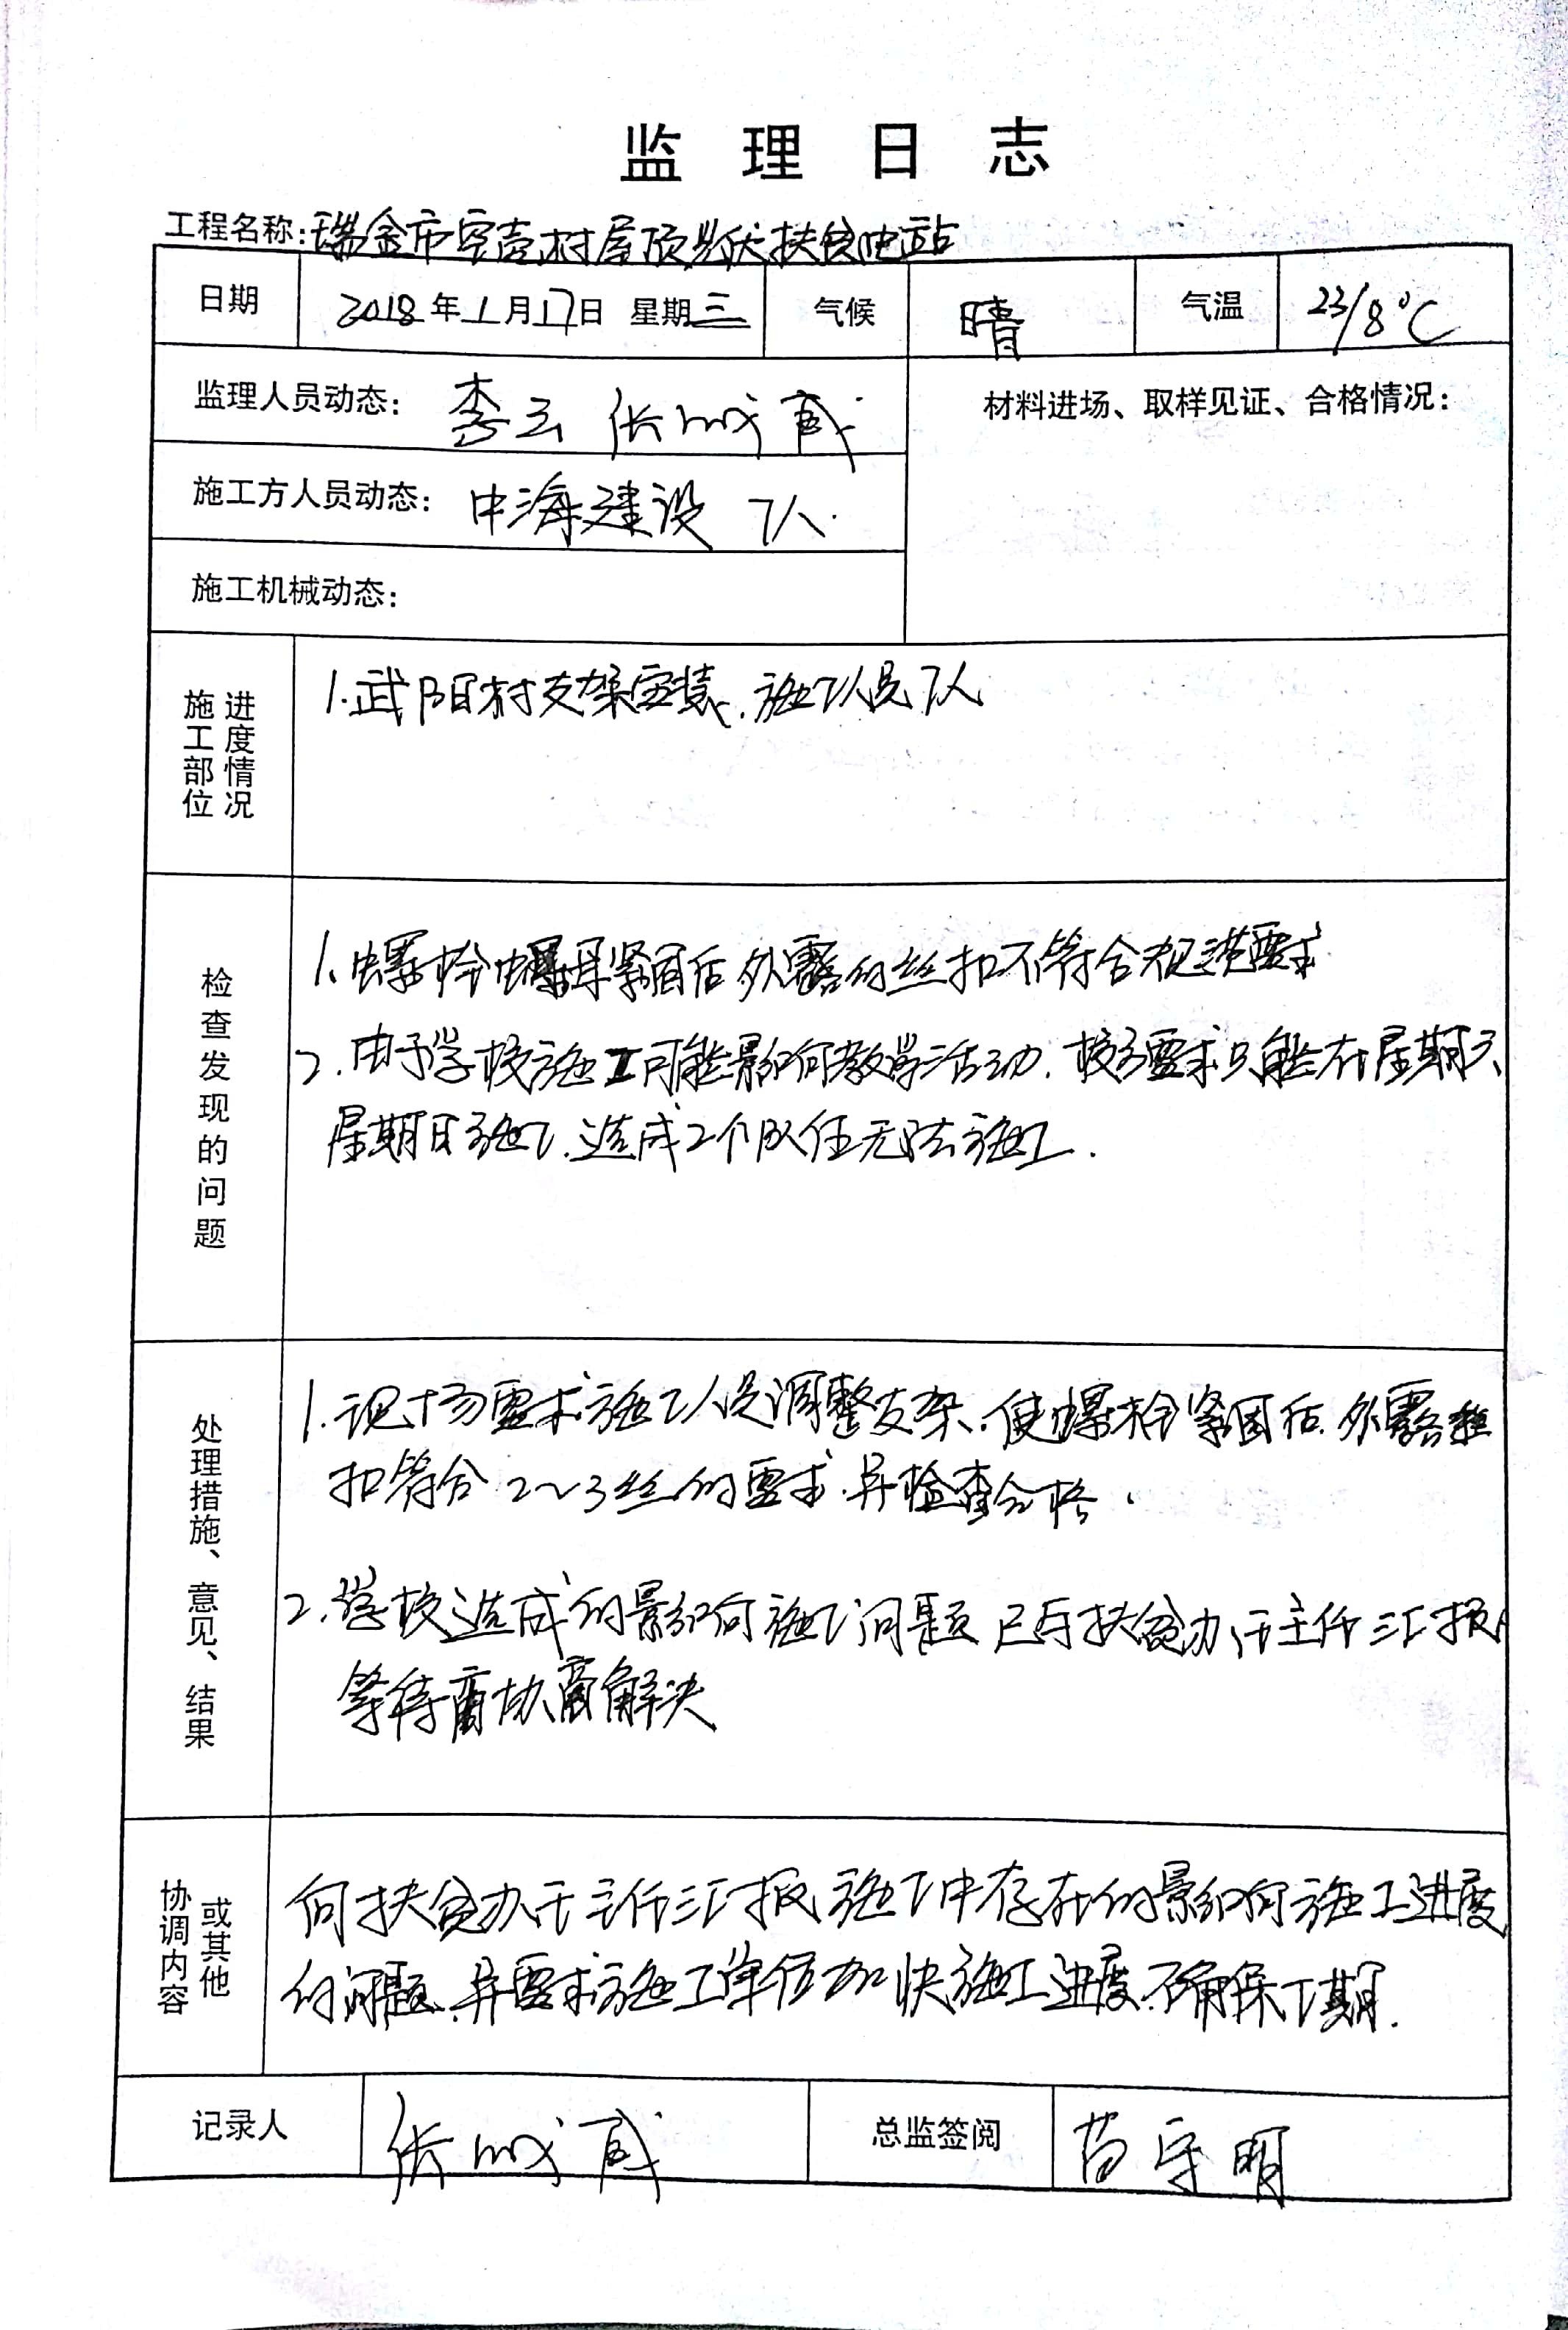 监理日志
工程名称:瑞金市 村屋顶光伏扶贫电站
日期 2018年1月17日 星期三 气候 晴 气温 23/8℃
监理人员动态: 李云 张 威 材料进场、取样见证、合格情况:
施工方人员动态: 中海建设 7人.
施工机械动态:
施工部位 进度情况
1.武阳村支架安装.施工人员7人
检查发现的问题
1.螺栓螺母紧固后外露的丝扣不符合规范要求
2.由于学校施工可能影响教学活动.校方要求只能在星期六
星期日施工.造成2个队伍无法施工.
处理措施、意见、结果
1.现场要求施工人员调整支架.使螺栓紧固后.外露丝
扣符合2~3丝的要求.并检查合格.
2.学校造成的影响施工问题已与扶贫办 主任汇报
等待 协商解决
协调内容 或其他
向扶贫办 主任汇报施工中存在的影响施工进度
的问题.并要求施工单位加快施工进度.确保工期.
记录人 张 威 总监签阅 苗守明